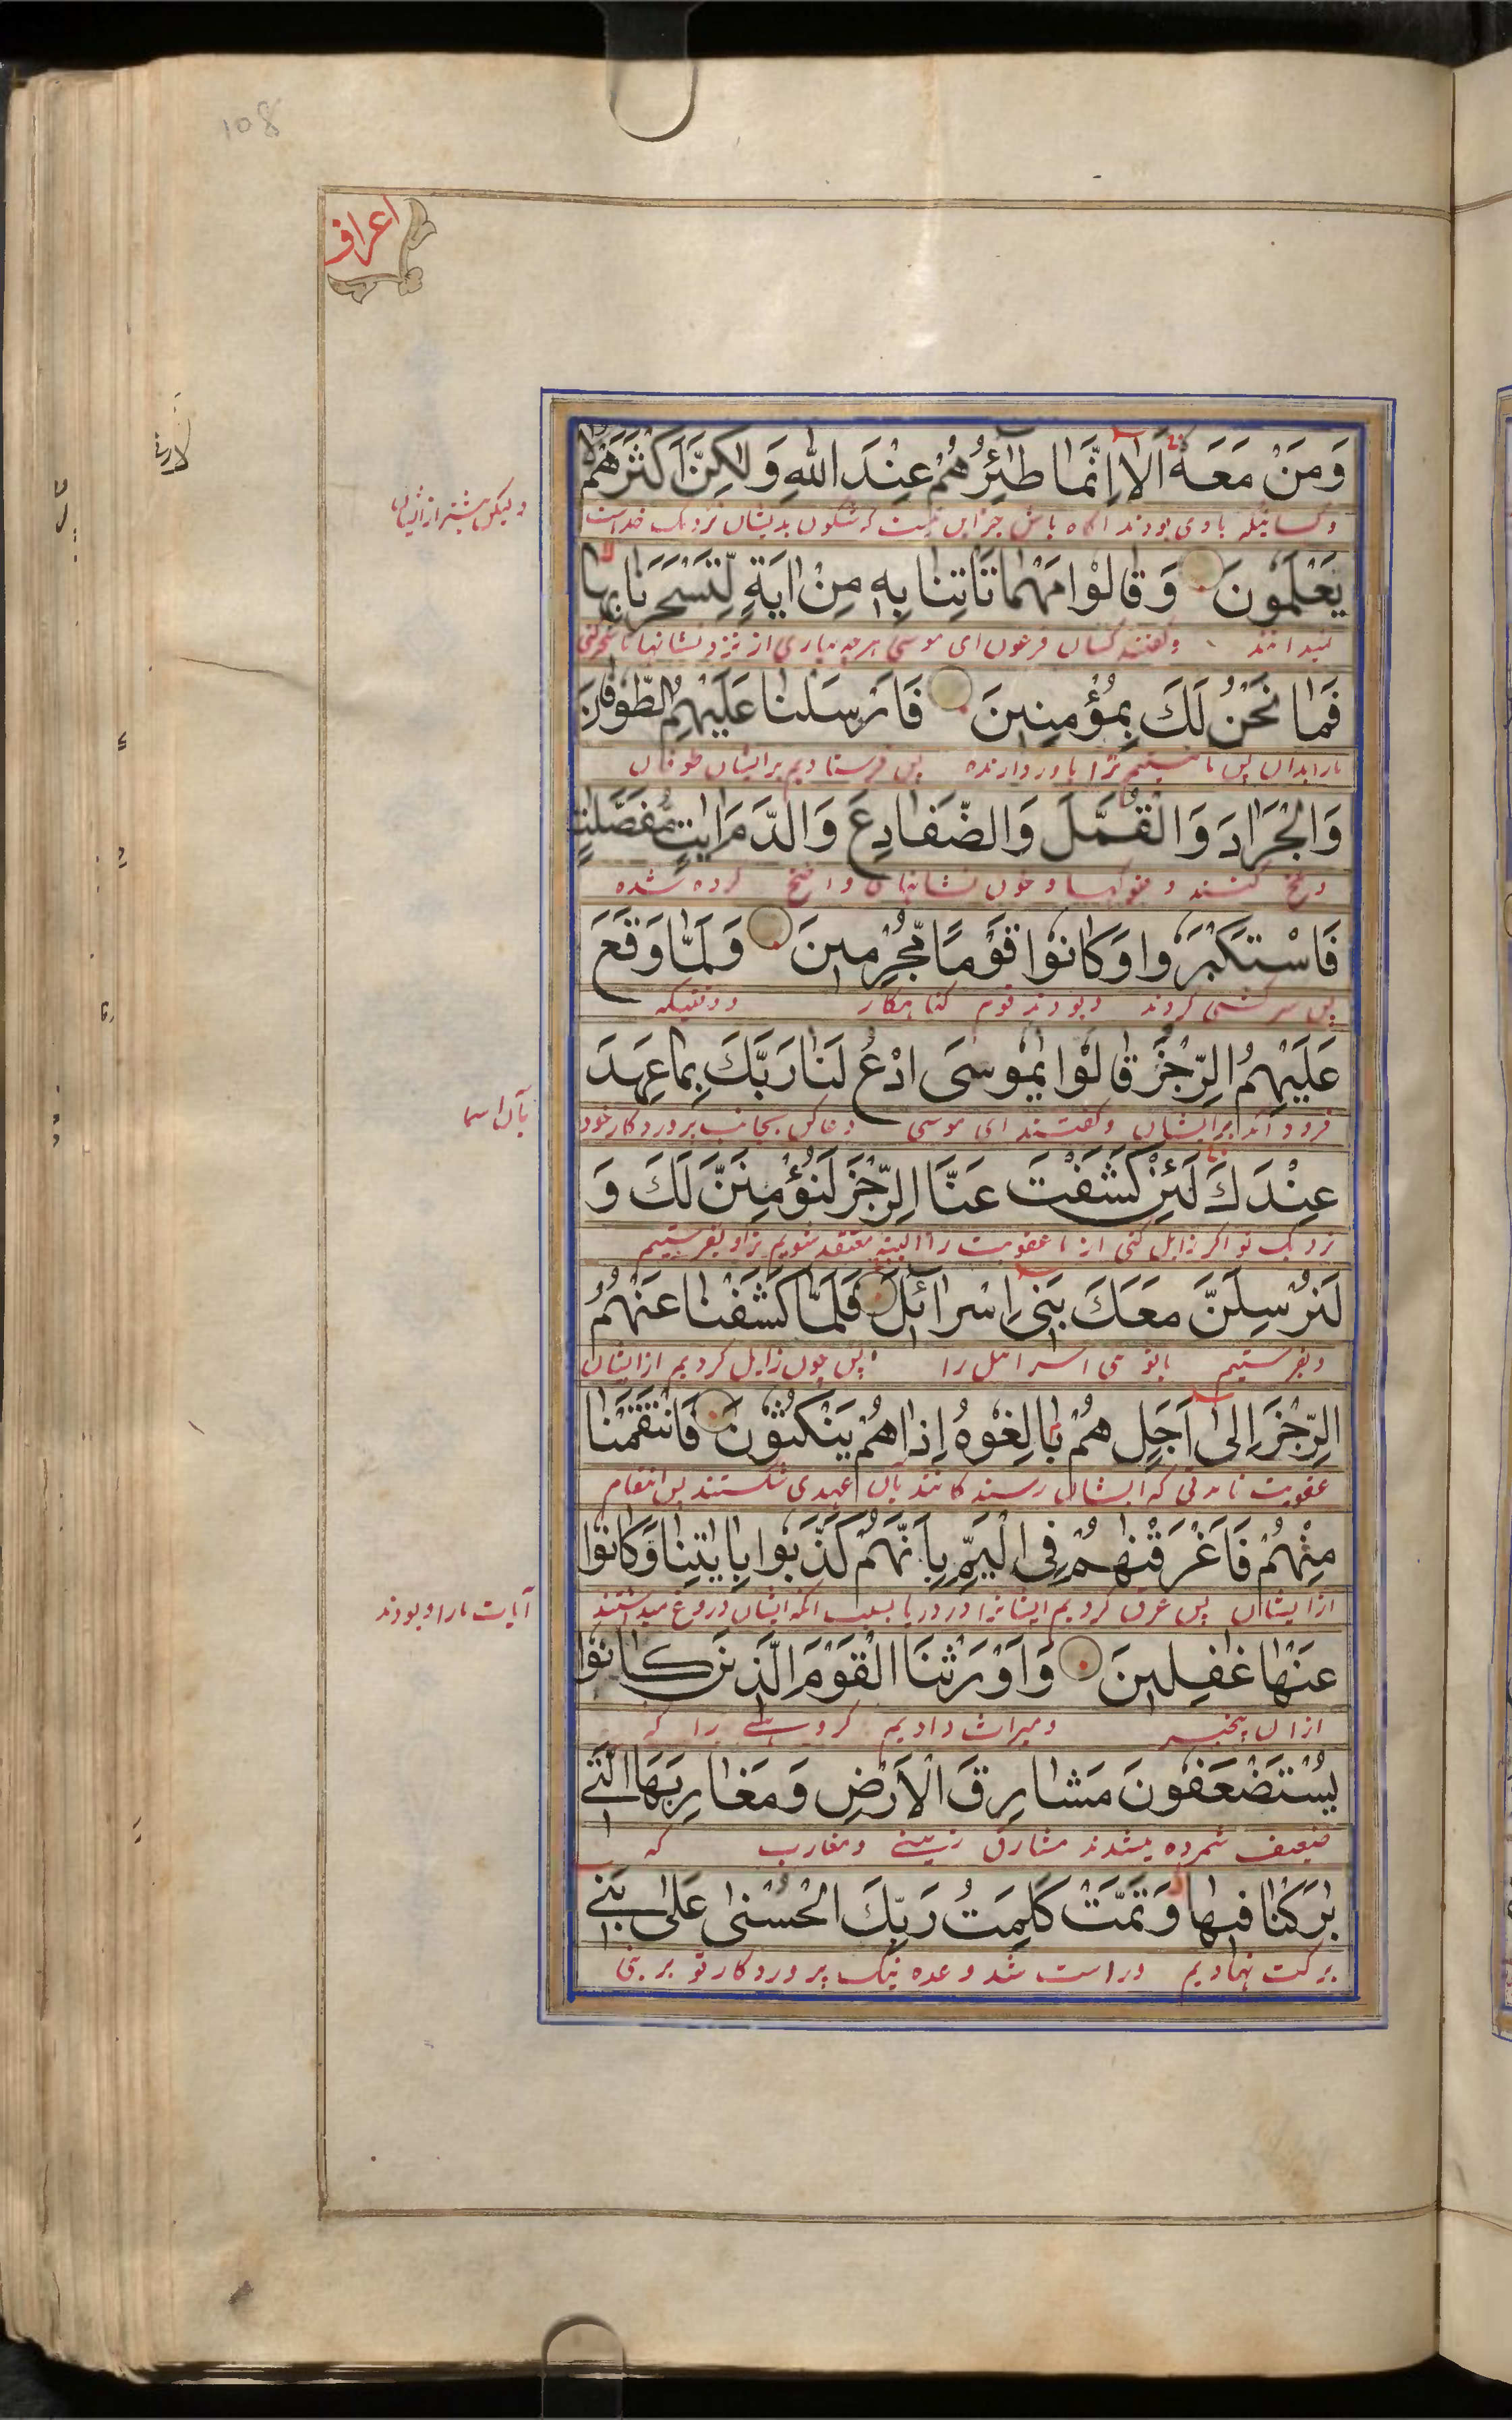 108
اعراف
وَمَنْ مَعَهُ اَلَا اِنَّمَا طٰٓئِرُهُمْ عِنْدَ اللّٰهِ وَلٰكِنَّ اَكْثَرَهُمْ لَا
وکسانیکه با وی بودند آگاه باش جز این نیست که شگون بدیشان نزدیک خداست
ولیکن بیشتر از ایشان
يَعْلَمُوْنَ وَقَالُوْا مَهْمَا تَاْتِنَا بِهٖ مِنْ اٰيَةٍ لِّتَسْحَرَنَا بِهَا
نمیدانند وگفتند کسان فرعون ای موسی هرچه بیاری از نزد نشانها تا سحر کنی
فَمَا نَحْنُ لَكَ بِمُؤْمِنِيْنَ فَاَرْسَلْنَا عَلَيْهِمُ الطُّوْفَانَ
مارا بدان پس ما نیستیم ترا باور دارنده پس فرستادیم بر ایشان طوفان
وَالْجَرَادَ وَالْقُمَّلَ وَالضَّفَادِعَ وَالدَّمَ اٰيٰتٍ مُّفَصَّلٰتٍ
وملخ وغوکها وخون نشانهای واضح کرده شده
فَاسْتَكْبَرُوْا وَكَانُوْا قَوْمًا مُّجْرِمِيْنَ وَلَمَّا وَقَعَ
پس سرکشی کردند وبودند قوم گناهکار ووقتیکه
عَلَيْهِمُ الرِّجْزُ قَالُوْا يٰمُوْسَى ادْعُ لَنَا رَبَّكَ بِمَا عَهِدَ
فرود آمد بر ایشان وگفتند ای موسی دعا کن بجانب پروردگار خود
عِنْدَكَ لَئِنْ كَشَفْتَ عَنَّا الرِّجْزَ لَنُؤْمِنَنَّ لَكَ وَ
نزدیک تو اگر زایل کنی از ما عقوبت را البته معتقد شویم ترا وبفرستیم
لَنُرْسِلَنَّ مَعَكَ بَنِيْ اِسْرَآئِلَ فَلَمَّا كَشَفْنَا عَنْهُمُ
وبفرستیم باتو بنی اسرائیل را پس چون زایل کردیم از ایشان
الرِّجْزَ اِلٰى اَجَلٍ هُمْ بَالِغُوْهُ اِذَا هُمْ يَنْكُثُوْنَ فَانْتَقَمْنَا
عقوبت تا مدتی که ایشان رسند بآن عهدی شکستند پس انتقام
مِنْهُمْ فَاَغْرَقْنٰهُمْ فِى الْيَمِّ بِاَنَّهُمْ كَذَّبُوْا بِاٰيٰتِنَا وَكَانُوْا
از ایشان پس غرق کردیم ایشانرا در دریا بسبب آنکه ایشان دروغ میداشتند
آیات مارا وبودند
عَنْهَا غٰفِلِيْنَ وَاَوْرَثْنَا الْقَوْمَ الَّذِيْنَ كَانُوْا
ازان بیخبر ومیراث دادیم گروهی را که
يُسْتَضْعَفُوْنَ مَشَارِقَ الْاَرْضِ وَمَغَارِبَهَا الَّتِيْ
ضعیف شمرده میشدند مشارق زمینی ومغارب که
بٰرَكْنَا فِيْهَا وَتَمَّتْ كَلِمَتُ رَبِّكَ الْحُسْنٰى عَلٰى بَنِيْ
برکت نهادیم وراست شد وعده نیک پروردگار تو بر بنی